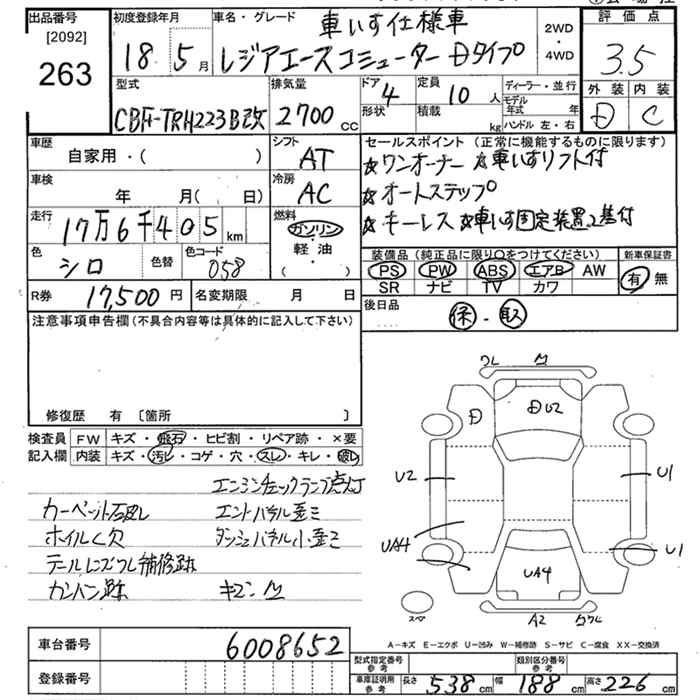 出品番号
[2092]
263
初度登録年月
18 5月
車名・グレード
車いす仕様車
レジアエースコミューター Dタイプ
2WD
・
4WD
評価点
3.5
外装 内装
D C
型式
CBF-TRH223B改
排気量
2700 cc
ドア 4
形状
定員 10 人
積載 kg
ディーラー・並行
モデル年式 年
ハンドル 左・右
車歴
自家用・( )
シフト
AT
車検
年 月( 日)
冷房
AC
走行
17万6千405 km
燃料
ガソリン
・
軽・油
( )
色
シロ
色替
色コード
058
R券 17,500円
名変期限 月 日
セールスポイント(正常に機能するものに限ります)
☆ワンオーナー ☆車いすリフト付
☆オートステップ
☆キーレス ☆車いす固定装置2基付
装備品(純正品に限り○をつけてください)
PS PW ABS エアB AW
SR ナビ TV カワ
新車保証書
有 無
後日品
保・取
注意事項申告欄(不具合内容等は具体的に記入して下さい)
修復歴 有 〔箇所 〕
検査員記入欄
FW キズ・飛石・ヒビ割・リペア跡・×要
内装 キズ・汚レ・コゲ・穴・スレ・キレ・破レ
エンジンチェックランプ点灯
カーペット破レ エンドパネル歪ミ
ホイルく欠 ダッシュパネル小歪ミ
テールレンズワレ補修跡
カンバン跡 キズ
D
DU2
U2
U1
UA4
U1
UA4
スペア
A2
A=キズ E=エクボ U=凹み W=補修跡 S=サビ C=腐食 XX=交換済
車台番号 6008652
登録番号
型式指定番号 参考
類別区分番号 参考
車庫証明用 参考 長さ 538 cm 幅 188 cm 高さ 226 cm